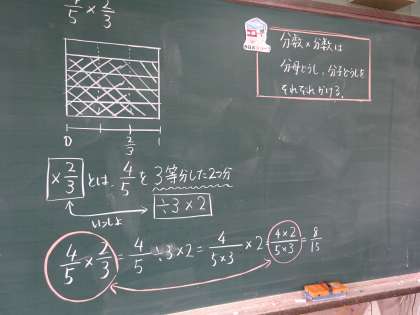 4/5 × 2/3
分数×分数は
分母どうし、分子どうしを
それぞれかける。
0 2/3 1
×2/3 とは、4/5 を 3等分した2つ分
いっしょ
÷3×2
4/5 × 2/3 = 4/5 ÷3×2 = 4/5×3 ×2 = 4×2/5×3 = 8/15